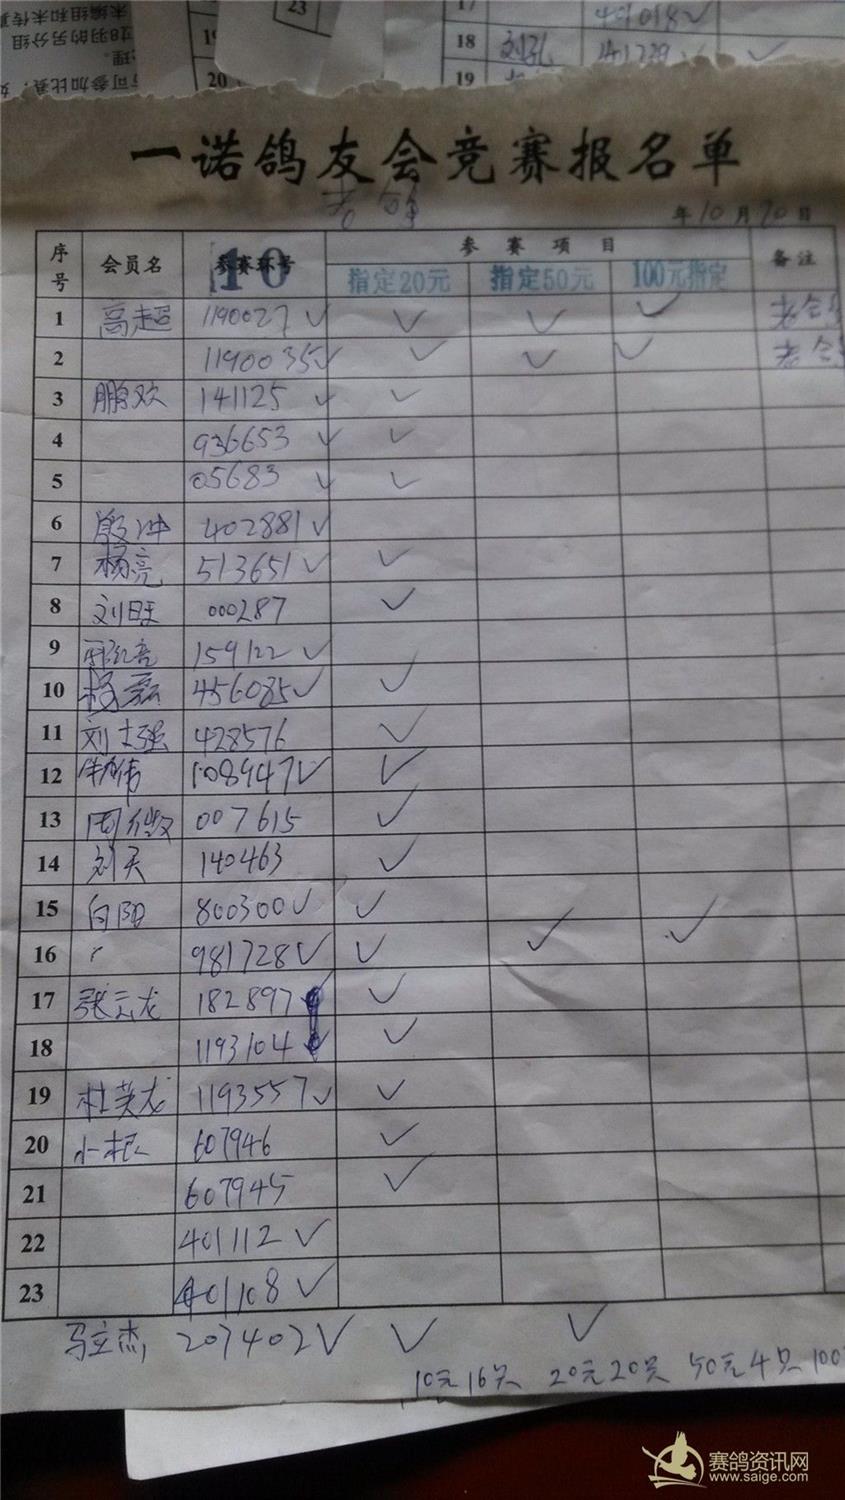 23
19
20
17
401018 ✓
18 刘孔 141239 ✓ ✓
19
未编组和未传真
过8羽的另分组
理。
后可参加比赛，如
一诺鸽友会竞赛报名单
年 10 月 20 日
序号 会员名 参赛环号 10 参赛项目 备注
指定20元 指定50元 100元指定
1 高超 1190027 ✓ ✓ ✓ ✓
2 1190035 ✓ ✓ ✓ ✓
3 鹏欢 141125 ✓ ✓
4 936653 ✓ ✓
5 05683 ✓ ✓
6 殷冲 402881 ✓
7 杨亮 513651 ✓ ✓
8 刘旺 000287 ✓
9 邢红亮 159122 ✓
10 杨磊 456085 ✓ ✓
11 刘士强 428576 ✓
12 108947 ✓ ✓
13 007615 ✓
14 刘天 140463 ✓
15 向阳 800300 ✓ ✓
16 〃 981728 ✓ ✓ ✓ ✓
17 张云龙 182897 ✓ ✓
18 1193104 ✓ ✓
19 杜英龙 1193557 ✓ ✓
20 小根 607946 ✓
21 607945 ✓
22 401112 ✓
23 401108 ✓
马立杰 207402 ✓ ✓ ✓
10元16只 20元20只 50元4只 100
赛鸽资讯网
www.saige.com